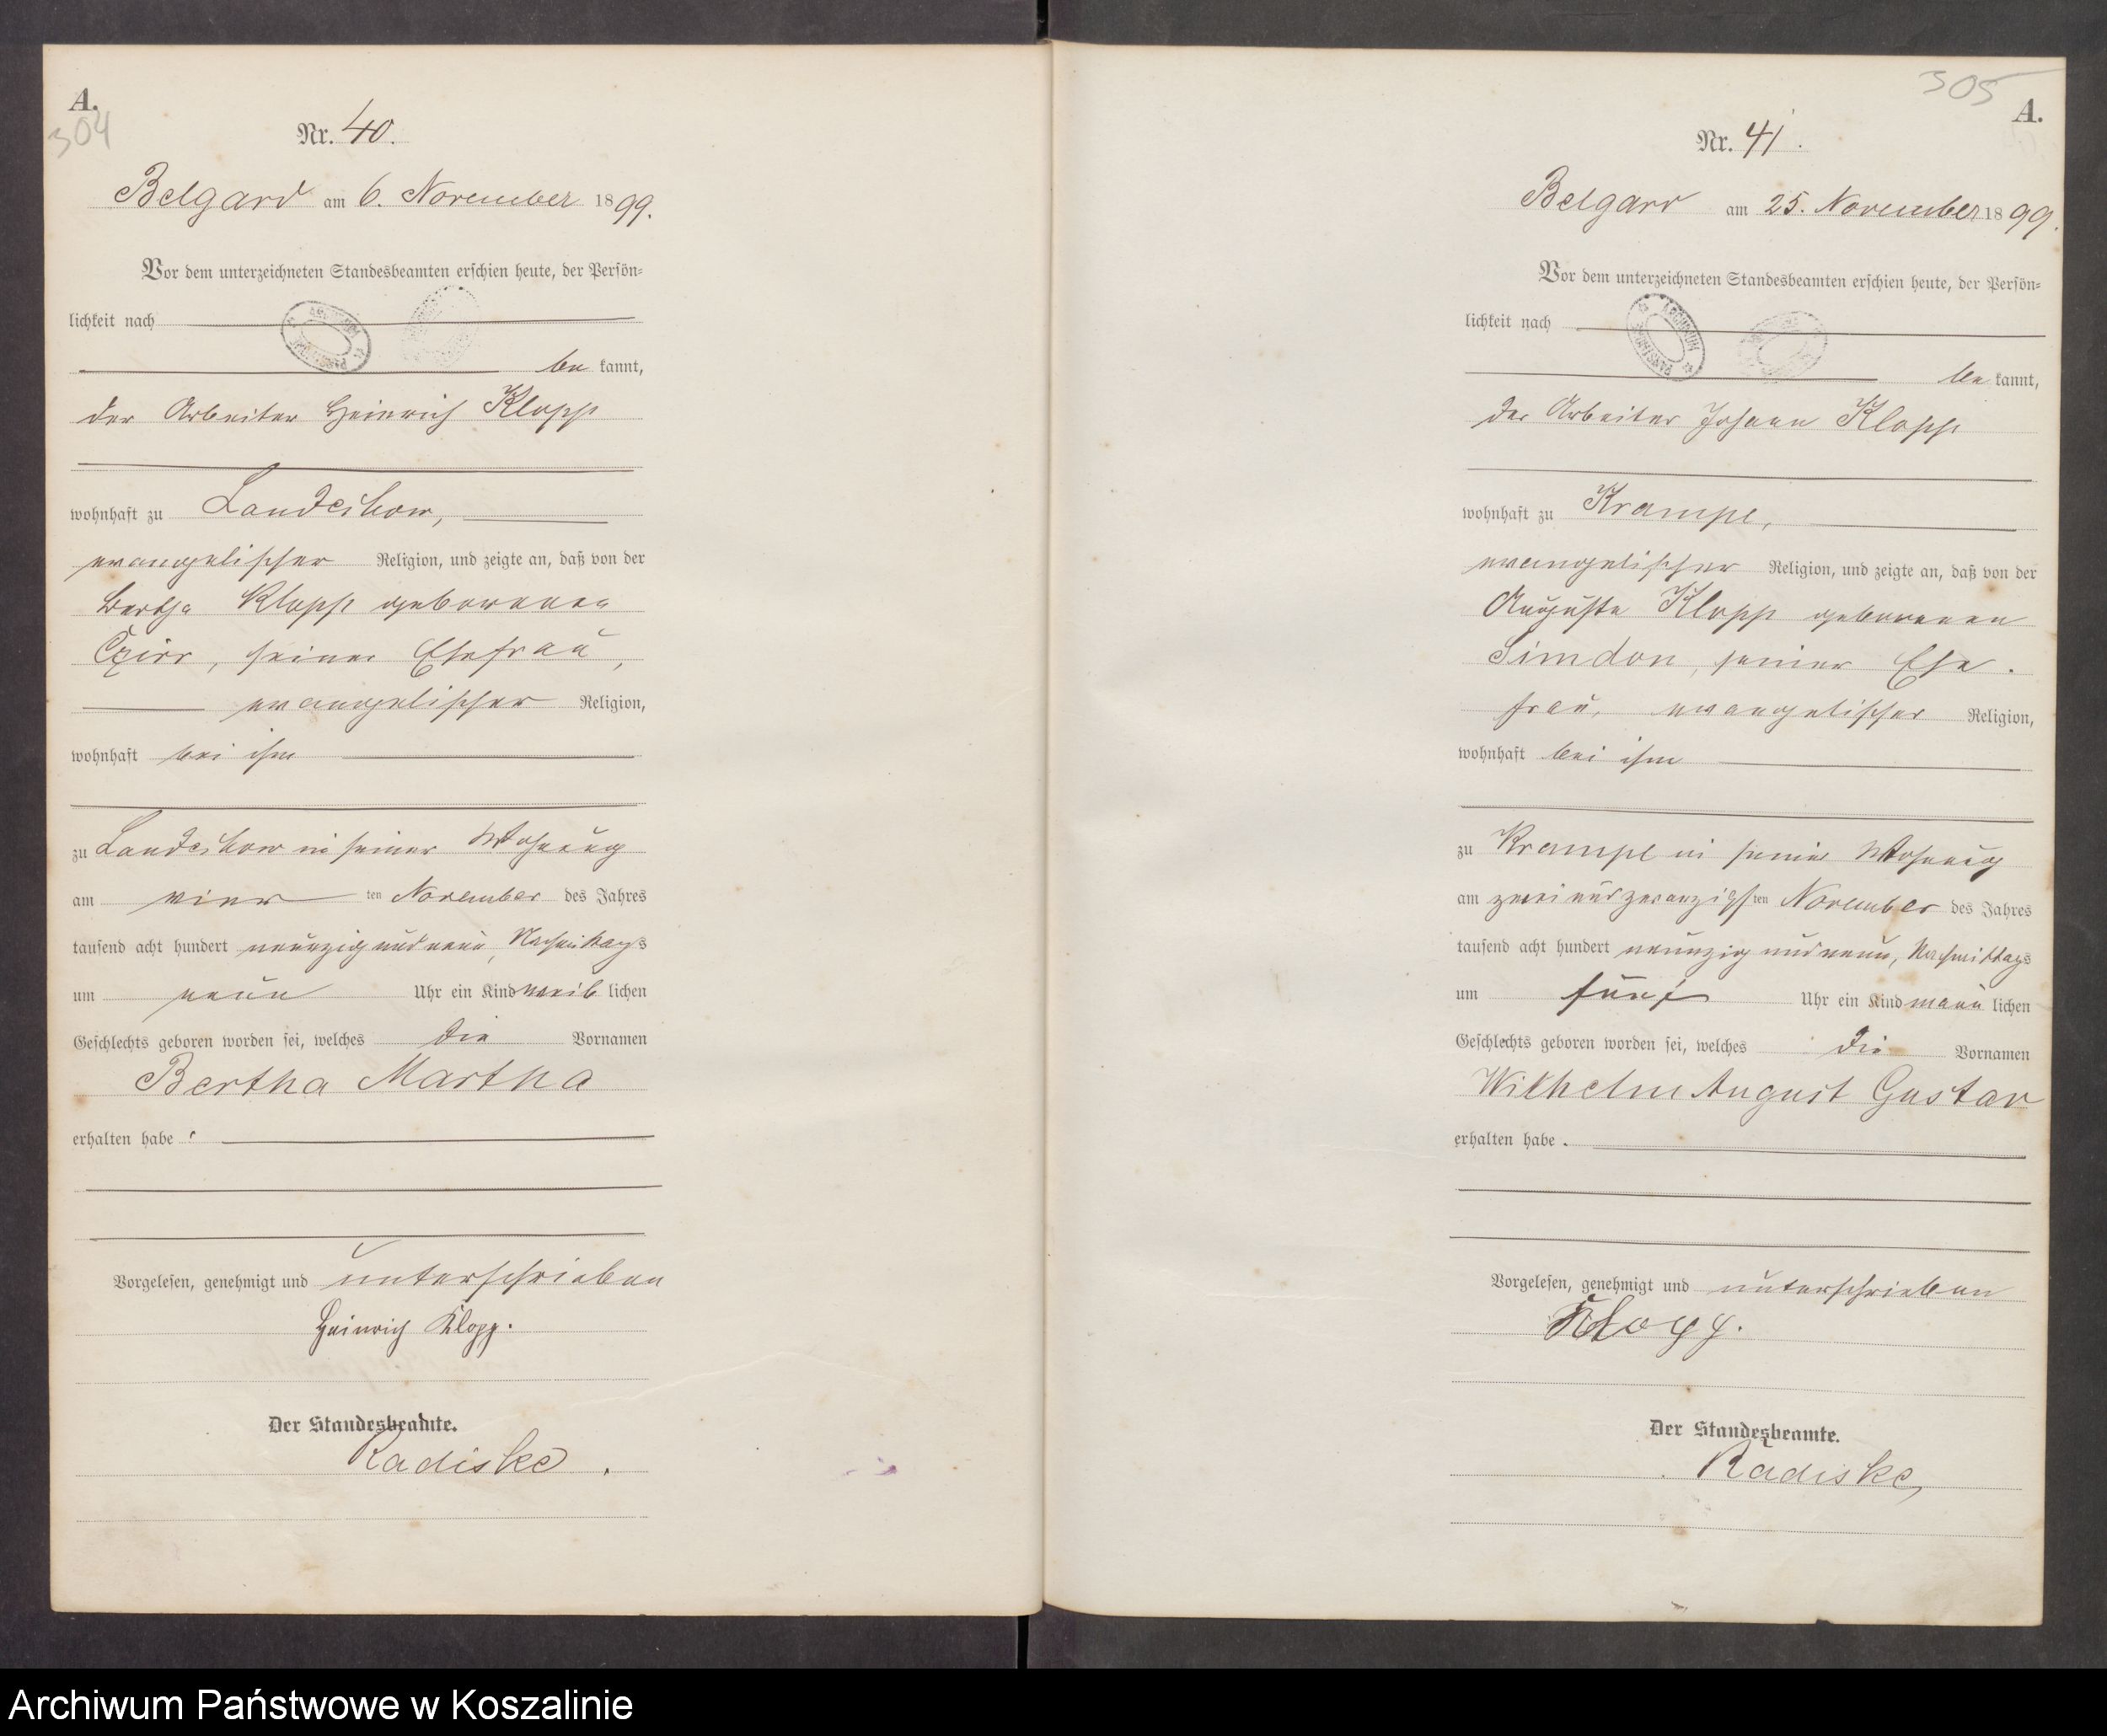 A.
304
Nr. 40.
Belgard am 6. November 1899.
Vor dem unterzeichneten Standesbeamten erschien heute, der Persön-
lichkeit nach
be kannt,
der Arbeiter Heinrich Klopp
wohnhaft zu Landechow,
evangelischer Religion, und zeigte an, daß von der
Bertha Klopp geborenen
Czirr, seiner Ehefrau,
evangelischer Religion,
wohnhaft bei ihm
zu Landechow in seiner Wohnung
am vier ten November des Jahres
tausend acht hundert neunzig und neun, Nachmittags
um neun Uhr ein Kind weib lichen
Geschlechts geboren worden sei, welches die Vornamen
Bertha Martha
erhalten habe.
Vorgelesen, genehmigt und unterschrieben
Heinrich Klopp.
Der Standesbeamte.
Radiske.
305
A.
Nr. 41.
Belgard am 25. November 1899.
Vor dem unterzeichneten Standesbeamten erschien heute, der Persön-
lichkeit nach
be kannt,
der Arbeiter Johann Klopp
wohnhaft zu Krampe,
evangelischer Religion, und zeigte an, daß von der
Auguste Klopp geborenen
Simdon, seiner Ehe-
frau, evangelischer Religion,
wohnhaft bei ihm
zu Krampe in seiner Wohnung
am zwei und zwanzigsten November des Jahres
tausend acht hundert neunzig und neun, Nachmittags
um fünf Uhr ein Kind männ lichen
Geschlechts geboren worden sei, welches die Vornamen
Wilhelm August Gustav
erhalten habe.
Vorgelesen, genehmigt und unterschrieben
Klopp.
Der Standesbeamte.
Radiske,
Archiwum Państwowe w Koszalinie